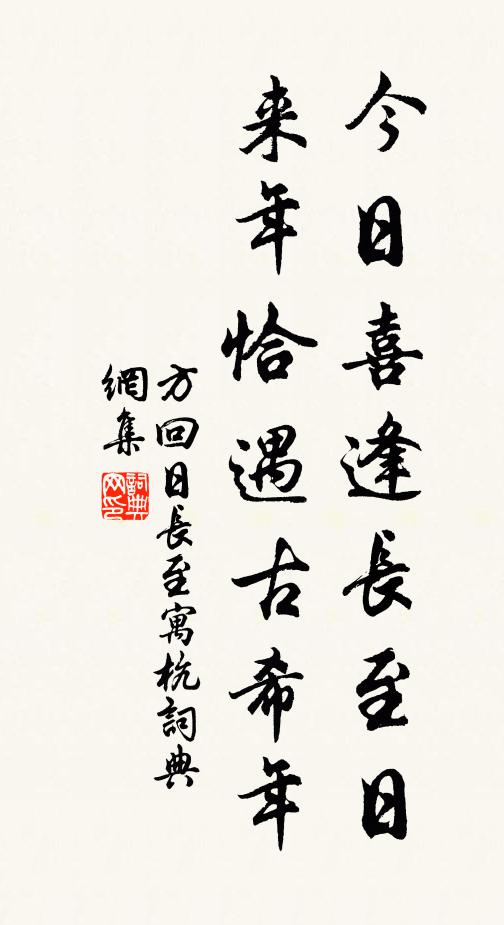 今日喜逢長至日
来年恰遇古希年
方回日長至寓杭詞典
網集
詞典
网印